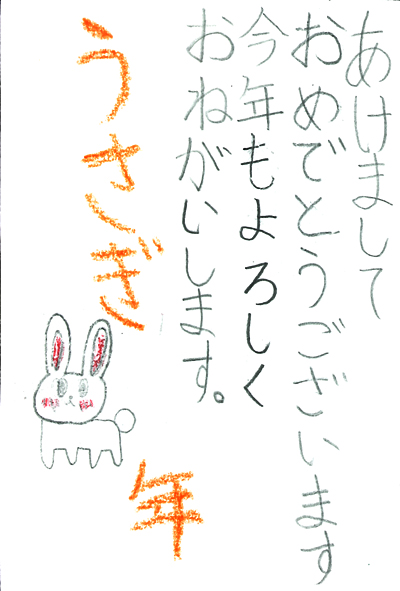 あけまして
おめでとうございます
今年もよろしく
おねがいします。
うさぎ
年